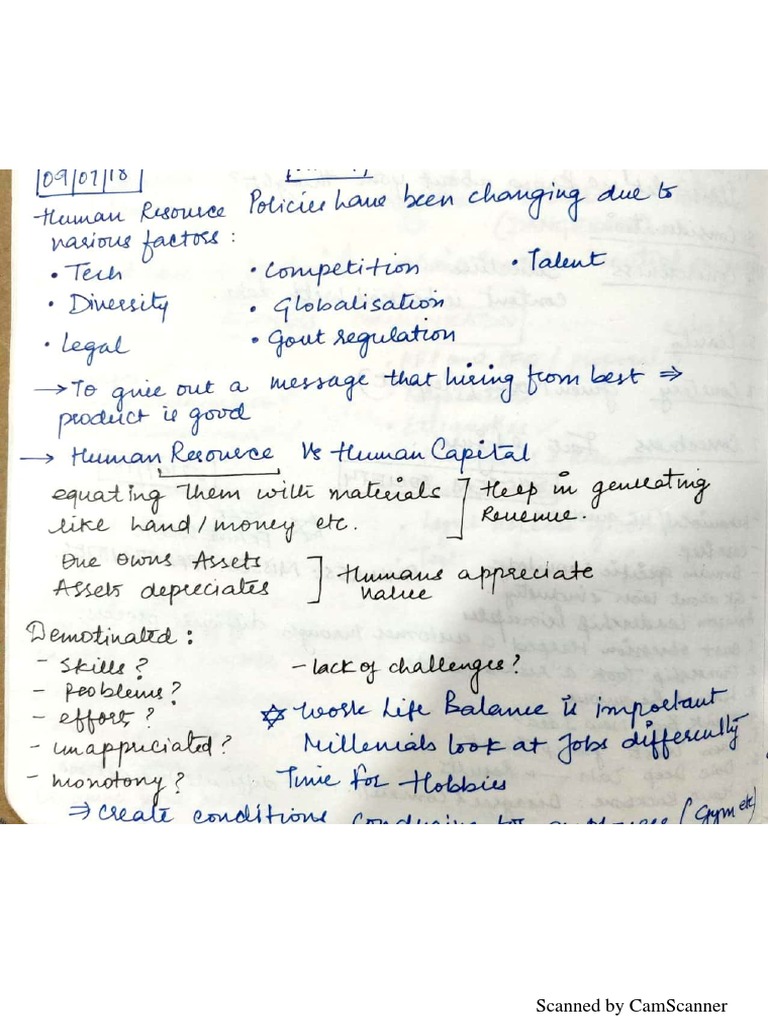 09/07/18
Human Resource Policies have been changing due to
various factors:
• Tech • Competition • Talent
• Diversity • Globalisation
• Legal • Govt regulation
→ To give out a message that hiring from best ⇒
product is good
→ Human Resource Vs Human Capital
equating them with materials ] Help in generating
like land/money etc. Revenue.
One owns Assets ] Humans appreciate
Assets depreciates value
Demotivated:
- Skills? - lack of challenges?
- Problems?
- efforts? ✡ Work Life Balance is important
- unappriciated? Millenials look at Jobs differently
- monotony? Time for Hobbies
⇒ create conditions conducive for employees (Gym etc)
Scanned by CamScanner